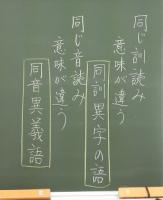 同じ訓読み
意味が違う
同訓異字の語
同じ音読み
意味が違う
同音異義語